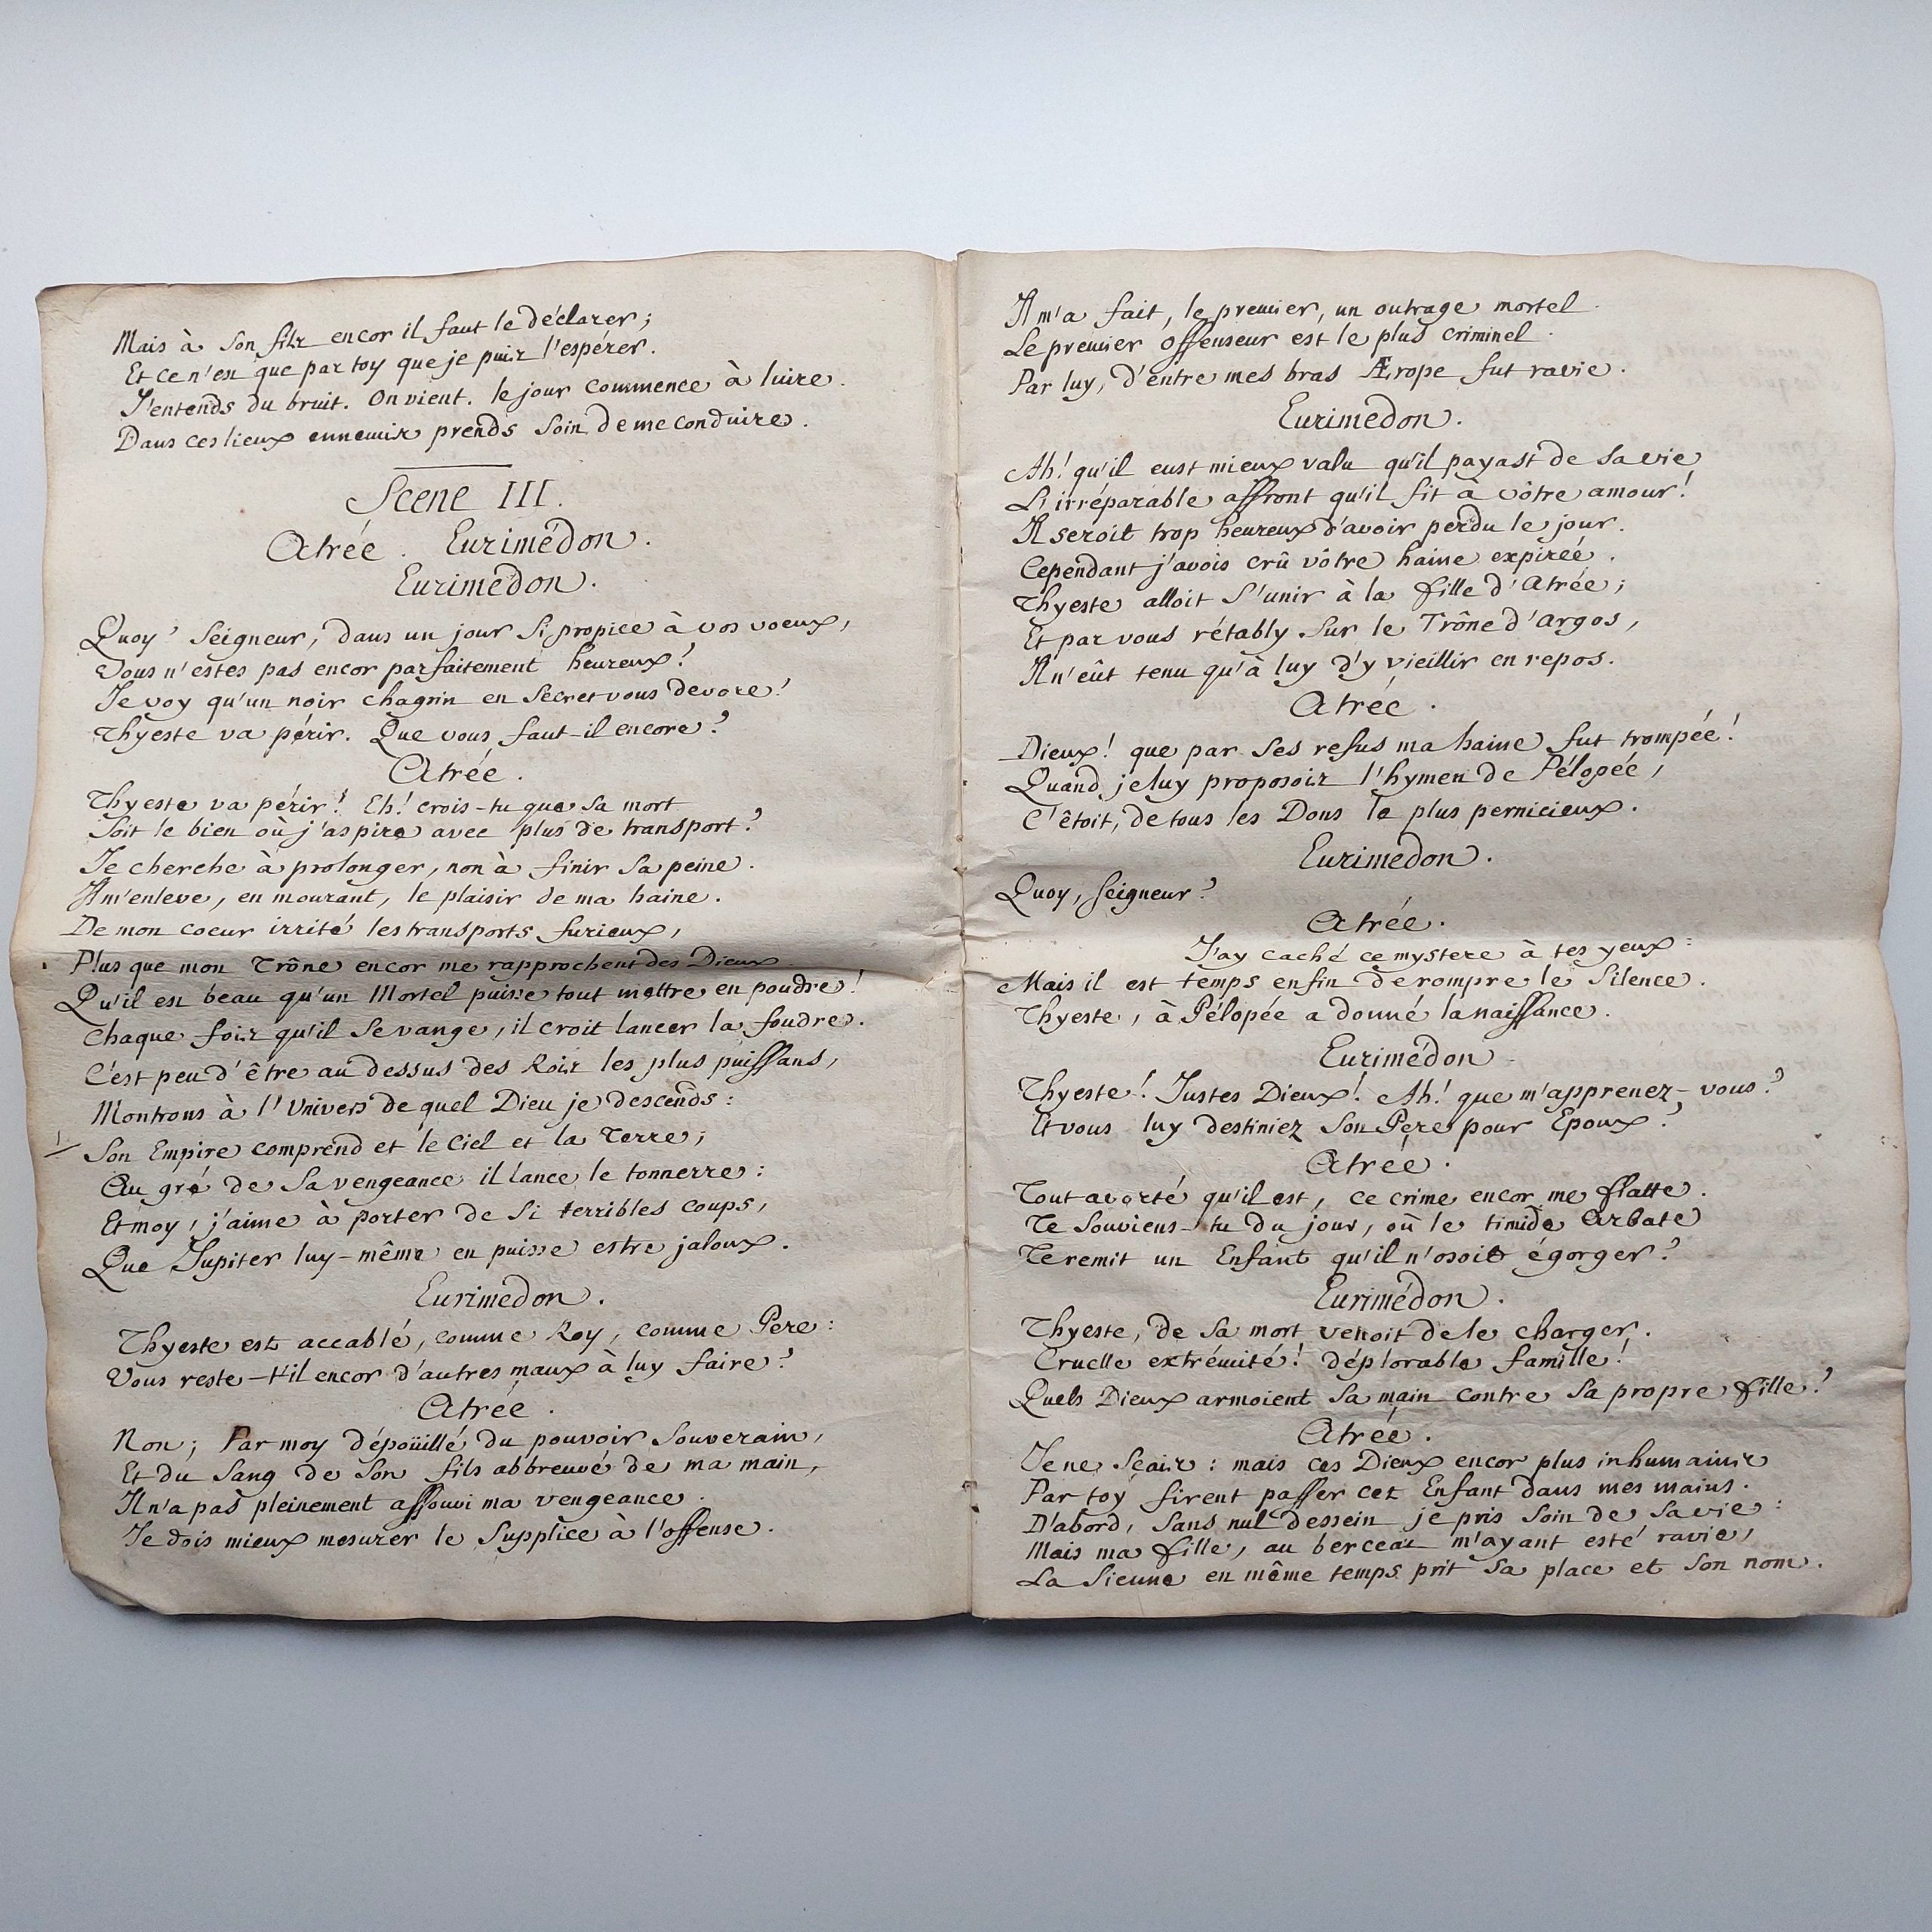 Mais à son fils encor il faut le déclarer;
Et ce n'est que par toy que je puis l'espérer.
J'entends du bruit. On vient. le jour commence à luire.
Dans ces lieux ennemis prends soin de me conduire.
Scene III.
Atrée. Eurimédon.
Eurimédon.
Quoy? Seigneur, dans un jour si propice à vos voeux,
Vous n'estes pas encor parfaitement heureux!
Je voy qu'un noir chagrin en secret vous devore!
Thyeste va périr. Que vous faut-il encore?
Atrée.
Thyeste va périr! Eh! crois-tu que sa mort
Soit le bien où j'aspire avec plus de transport?
Je cherche à prolonger, non à finir sa peine.
Il m'enleve, en mourant, le plaisir de ma haine.
De mon coeur irrité les transports furieux,
Plus que mon Trône encor me rapprochent des Dieux.
Qu'il est beau qu'un Mortel puisse tout mettre en poudre!
Chaque fois qu'il se vange, il croit lancer la foudre.
C'est peu d'être au dessus des Rois les plus puissans,
Montrons à l'Univers de quel Dieu je descends:
Son Empire comprend et le Ciel et la Terre;
Au gré de sa vengeance il lance le tonnerre:
Et moy, j'aime à porter de si terribles coups,
Que Jupiter luy-même en puisse estre jaloux.
Eurimedon.
Thyeste est accablé, comme Roy, comme Pere:
Vous reste-t'il encor d'autres maux à luy faire?
Atrée.
Non; Par moy dépoüillé du pouvoir souverain,
Et du sang de son fils abbreuvé de ma main,
Il n'a pas pleinement assouvi ma vengeance.
Je dois mieux mesurer le supplice à l'offense.
Il m'a fait, le premier, un outrage mortel.
Le premier offenseur est le plus criminel.
Par luy, d'entre mes bras Ærope fut ravie.
Eurimedon.
Ah! qu'il eust mieux valu qu'il payast de sa vie
L'irréparable affront qu'il fit à vôtre amour!
Il seroit trop heureux d'avoir perdu le jour.
Cependant j'avois crû vôtre haine expirée.
Thyeste alloit s'unir à la fille d'Atrée;
Et par vous rétably sur le Trône d'Argos,
Il n'eût tenu qu'à luy d'y vieillir en repos.
Atrée.
Dieux! que par ses refus ma haine fut trompée!
Quand je luy proposois l'hymen de Pélopée,
C'êtoit, de tous les Dons le plus pernicieux.
Eurimedon.
Quoy, Seigneur?
Atrée.
J'ay caché ce mystere à tes yeux:
Mais il est temps enfin de rompre le silence.
Thyeste, à Pélopée a donné la naissance.
Eurimédon
Thyeste! Justes Dieux! Ah! que m'apprenez-vous?
Et vous luy destiniez son Pere pour Epoux?
Atrée.
Tout avorté qu'il est, ce crime encor me flatte.
Te souviens-tu du jour, où le timide Arbate
Te remit un Enfant qu'il n'osoit égorger?
Eurimédon.
Thyeste, de sa mort venoit de le charger.
Cruelle extrémité! déplorable famille!
Quels Dieux armoient sa main contre sa propre fille?
Atrée.
Je ne sçais: mais ces Dieux encor plus inhumains
Par toy firent passer cet Enfant dans mes mains.
D'abord, sans nul dessein je pris soin de sa vie:
Mais ma fille, au berceau m'ayant esté ravie,
La sienne en même temps prit sa place et son nom.